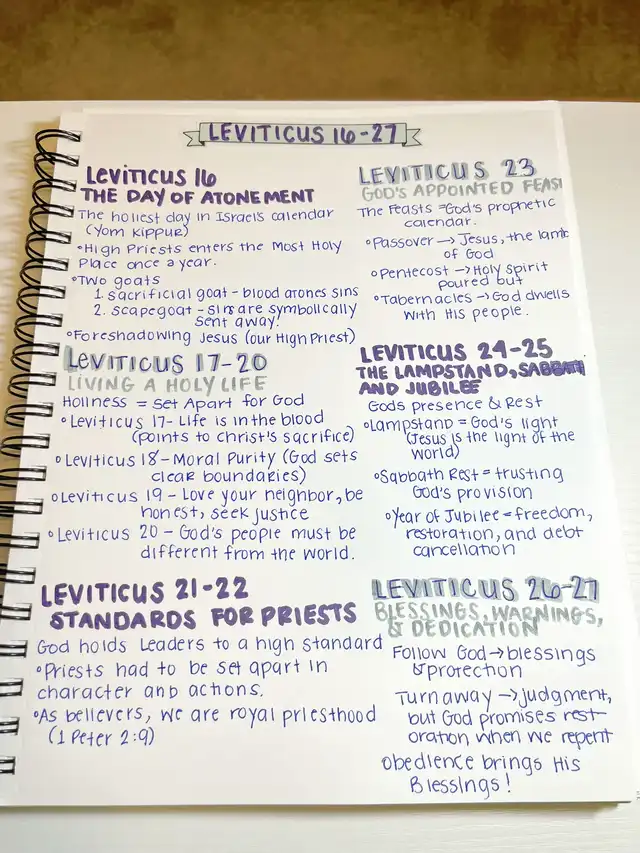 LEVITICUS 16-27
Leviticus 16
THE DAY OF ATONEMENT
The holiest day in Israels calendar
(Yom Kippur)
•High Priests enters the Most Holy
Place once a year.
•Two goats
1. sacrificial goat - blood atones sins
2. scapegoat - sins are symbolically
sent away!
•Foreshadowing Jesus (our High Priest)
LEVITICUS 17-20
LIVING A HOLY LIFE
Holiness = Set Apart for God
•Leviticus 17-Life is in the blood
(points to Christ's sacrifice)
•Leviticus 18-Moral Purity (God sets
clear boundaries)
•Leviticus 19 - Love your neighbor, be
honest, seek justice
•Leviticus 20 - God's people must be
different from the world.
LEVITICUS 21-22
STANDARDS FOR PRIESTS
God holds Leaders to a high standard
•Priests had to be set apart in
character and actions.
•As believers, we are royal priesthood
(1 Peter 2:9)
LEVITICUS 23
GOD'S APPOINTED FEAST
The Feasts = God's prophetic
calendar.
•Passover → Jesus, the lamb
of God
•Pentecost → Holy Spirit
poured out
•Tabernacles → God dwells
with His people.
LEVITICUS 24-25
THE LAMPSTAND, SABBATH
AND JUBILEE
Gods presence & Rest
•Lampstand = God's light
(Jesus is the light of the
world)
•Sabbath Rest = trusting
God's provision
•Year of Jubilee = freedom,
restoration, and debt
cancellation
LEVITICUS 26-27
BLESSINGS, WARNINGS,
& DEDICATION
Follow God → blessings
& protection
Turn away → judgment,
but God promises rest-
oration when we repent
Obedience brings His
Blessings!